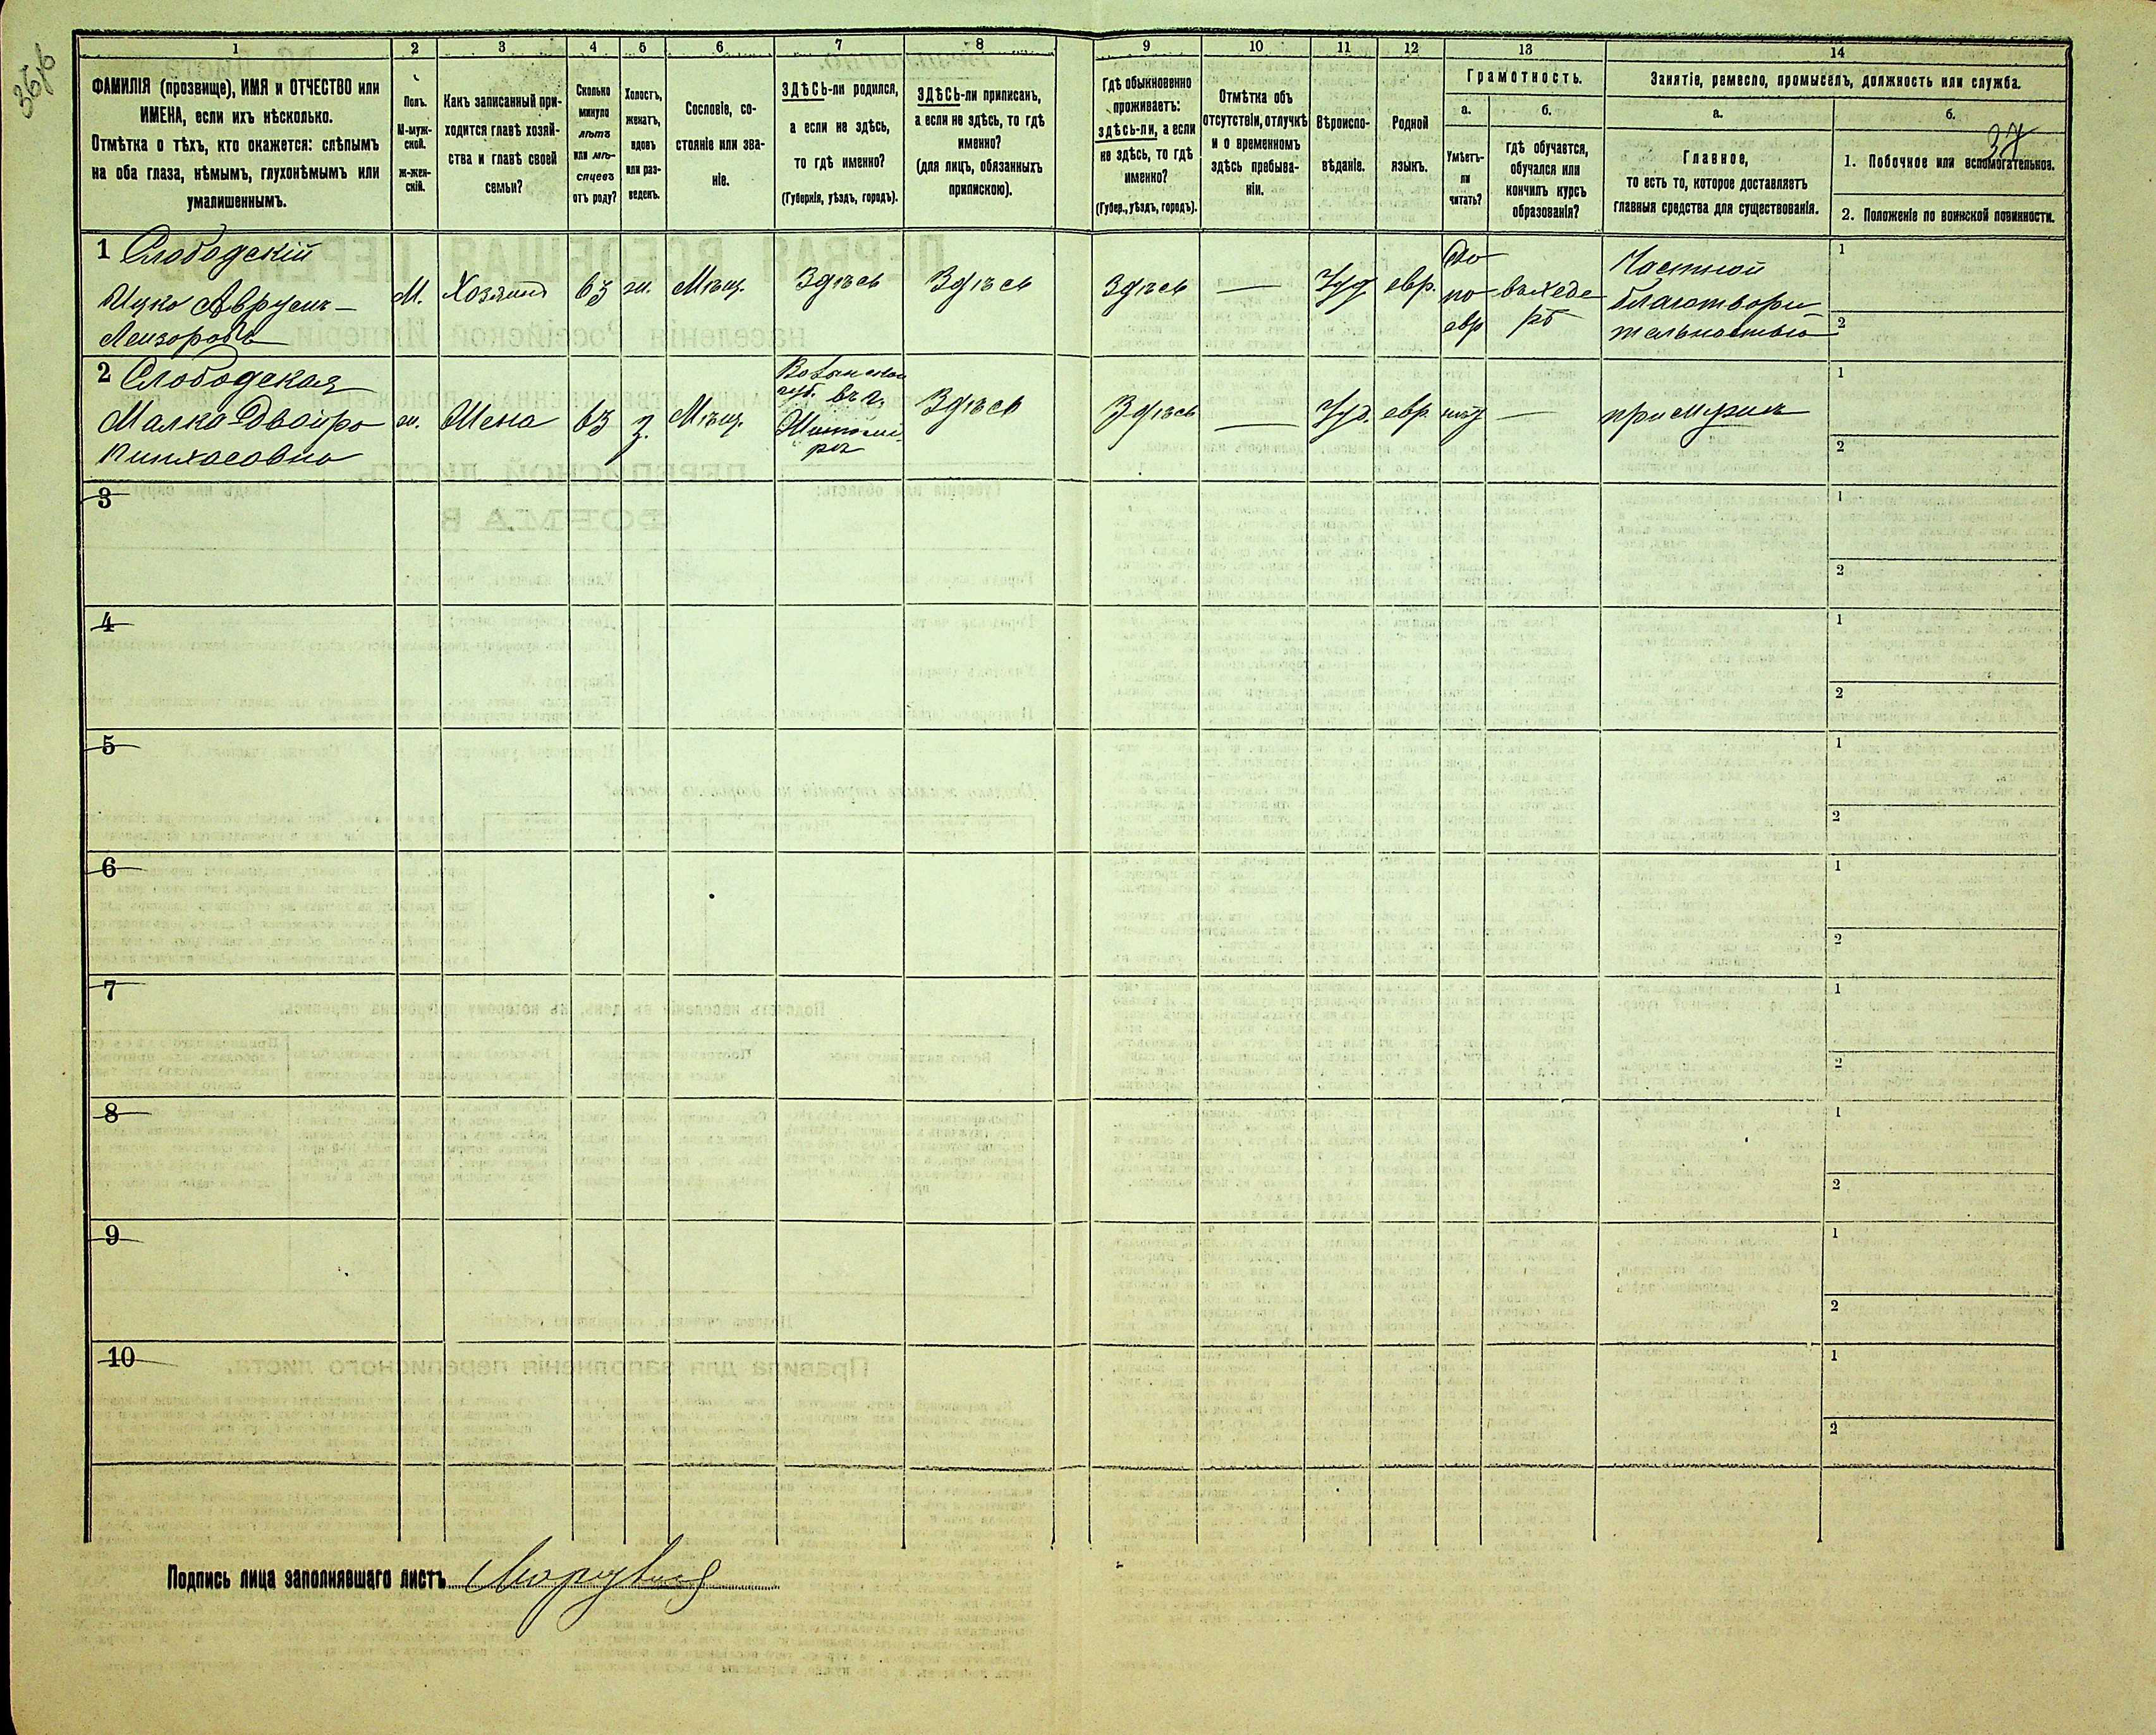 36/6
37
1 2 3 4 5 6 7 8 9 10 11 12 13 14
ФАМИЛІЯ (прозвище), ИМЯ и ОТЧЕСТВО или
ИМЕНА, если ихъ нѣсколько.
Отмѣтка о тѣхъ, кто окажется: слѣпымъ
на оба глаза, нѣмымъ, глухонѣмымъ или
умалишеннымъ.
Полъ.
М-муж-
ской.
ж-жен-
скій.
Какъ записанный при-
ходится главѣ хозяй-
ства и главѣ своей
семьи?
Сколько
минуло
лѣтъ
или мѣ-
сяцевъ
отъ роду?
Холостъ,
женатъ,
вдовъ
или раз-
веденъ.
Сословіе, со-
стояніе или зва-
ніе.
ЗДѢСЬ-ли родился,
а если не здѣсь,
то гдѣ именно?
(Губернія, уѣздъ, городъ).
ЗДѢСЬ-ли приписанъ,
а если не здѣсь, то гдѣ
именно?
(для лицъ, обязанныхъ
припискою).
Гдѣ обыкновенно
проживаетъ:
здѣсь-ли, а если
не здѣсь, то гдѣ
именно?
(Губер., уѣздъ, городъ).
Отмѣтка объ
отсутствіи, отлучкѣ
и о временномъ
здѣсь пребыва-
ніи.
Вѣроиспо-
вѣданіе.
Родной
языкъ.
Грамотность.
а.
Умѣетъ-
ли
читать?
б.
Гдѣ обучается,
обучался или
кончилъ курсъ
образованія?
Занятіе, ремесло, промыселъ, должность или служба.
а.
Главное,
то есть то, которое доставляетъ
главныя средства для существованія.
б.
1. Побочное или вспомогательное.
2. Положеніе по воинской повинности.
1 Слободскій
Ицко Аврумъ-
Лейзоровъ
М.
Хозяинъ
63
ж.
Мѣщ.
Здѣсь
Здѣсь
Здѣсь
—
Іуд
евр.
Да
по
евр
въ хеде
рѣ
Частной
благотвори-
тельностью
1
2
2 Слободская
Малка Двойра
Пинхасовна
ж.
Жена
63
з.
Мѣщ.
Волынской
губ. въ г.
Житоми-
рѣ
Здѣсь
Здѣсь
—
Іуд.
евр.
нѣтъ
—
при мужѣ
1
2
3
1
2
4
1
2
5
1
2
6
1
2
7
1
2
8
1
2
9
1
2
10
1
2
Подпись лица заполнявшаго листъ